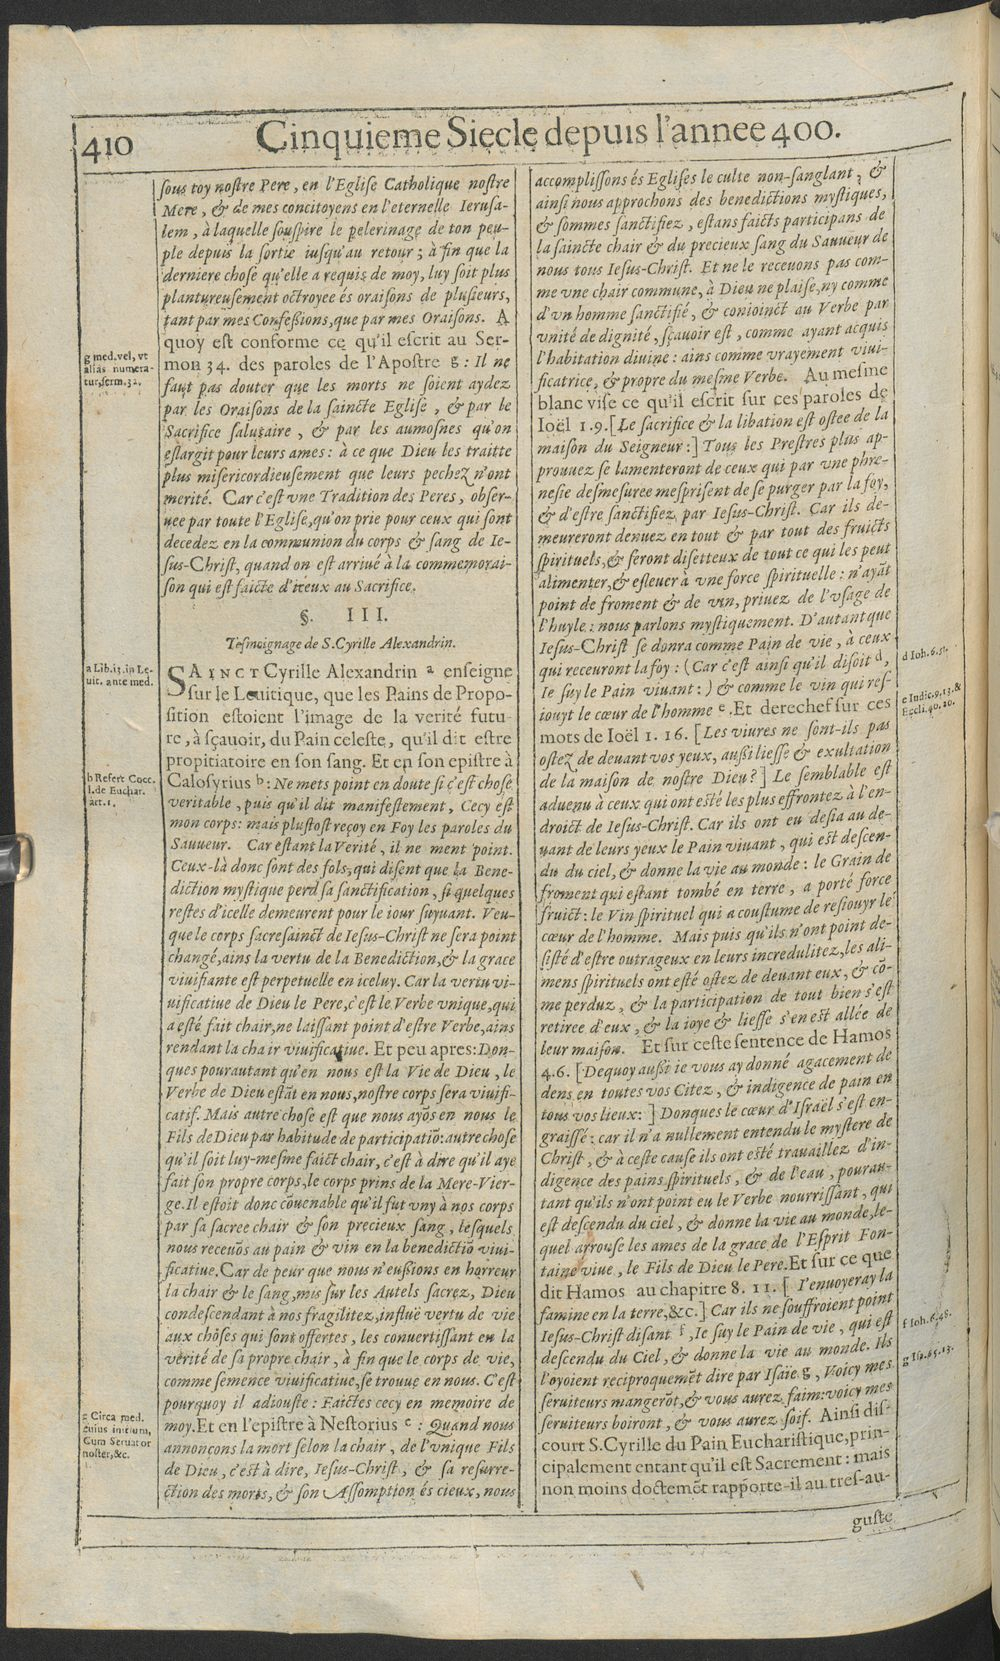 410
Cinquieme Siecle depuis l'annee 400.
sous toy nostre Pere, en l'Eglise Catholique nostre
Mere, & de mes concitoyens en l'eternelle Ierusa-
lem, à laquelle souspire le pelerinage de ton peu-
ple depuis la sortie iusqu'au retour; à fin que la
derniere chose qu'elle a requis de moy, luy soit plus
plantureusement octroyee és oraisons de plusieurs,
tant par mes Confeßions, que par mes Oraisons. A
quoy est conforme ce qu'il escrit au Ser-
mon 34. des paroles de l'Apostre g: Il ne
faut pas douter que les morts ne soient aydez
par les Oraisons de la saincte Eglise, & par le
Sacrifice salutaire, & par les aumosnes qu'on
eslargit pour leurs ames: à ce que Dieu les traitte
plus misericordieusement que leurs pechez n'ont
merité. Car c'est vne Tradition des Peres, obser-
uee par toute l'Eglise, qu'on prie pour ceux qui sont
decedez en la communion du corps & sang de Ie-
sus-Christ, quand on est arriué à la commemorai-
son qui est faicte d'iceux au Sacrifice.
§. III.
Tesmoignage de S. Cyrille Alexandrin.
SAINCT Cyrille Alexandrin a enseigne
sur le Leuitique, que les Pains de Propo-
sition estoient l'image de la verité futu-
re, à sçauoir, du Pain celeste, qu'il dit estre
propitiatoire en son sang. Et en son epistre à
Calosyrius b: Ne mets point en doute si c'est chose
veritable, puis qu'il dit manifestement, Cecy est
mon corps: mais plustost reçoy en Foy les paroles du
Sauueur. Car estant la Verité, il ne ment point.
Ceux-là donc sont des fols, qui disent que la Bene-
diction mystique perd sa sanctification, si quelques
restes d'icelle demeurent pour le iour suyuant. Veu-
que le corps sacresainct de Iesus-Christ ne sera point
changé, ains la vertu de la Benediction, & la grace
viuifiante est perpetuelle en iceluy. Car la vertu vi-
uificatiue de Dieu le Pere, c'est le Verbe vnique, qui
a esté fait chair, ne laissant point d'estre Verbe, ains
rendant la chair viuificatiue. Et peu apres: Don-
ques pourautant qu'en nous est la Vie de Dieu, le
Verbe de Dieu estāt en nous, nostre corps sera viuifi-
catif. Mais autre chose est que nous ayōs en nous le
Fils de Dieu par habitude de participatiō: autre chose
qu'il soit luy-mesme faict chair, c'est à dire qu'il aye
fait son propre corps, le corps prins de la Mere-Vier-
ge. Il estoit donc cōuenable qu'il fut vny à nos corps
par sa sacree chair & son precieux sang, lesquels
nous receuōs au pain & vin en la benedictiō viui-
ficatiue. Car de peur que nous n'eußions en horreur
la chair & le sang, mis sur les Autels sacrez, Dieu
condescendant à nos fragilitez, influë vertu de vie
aux choses qui sont offertes, les conuertissant en la
verité de sa propre chair, à fin que le corps de vie,
comme semence viuificatiue, se trouue en nous. C'est
pourquoy il adiouste: Faictes cecy en memoire de
moy. Et en l'epistre à Nestorius c: Quand nous
annonçons la mort selon la chair, de l'vnique Fils
de Dieu, c'est à dire, Iesus-Christ, & sa resurre-
ction des morts, & son Assomption és cieux, nous
g med. vel, vt
alias numera-
tur, serm. 32.
a Lib. 11. in Le-
uit. ante med.
b Refert Cocc.
l. de Euchar.
art. 1.
c Circa med.
cuius initium,
Cum Seruator
noster, &c.
accomplissons és Eglises le culte non-sanglant, &
ainsi nous approchons des benedictions mystiques,
& sommes sanctifiez, estans faicts participans de
la saincte chair & du precieux sang du Sauueur de
nous tous Iesus-Christ. Et ne le receuons pas com-
me vne chair commune, à Dieu ne plaise, ny comme
d'vn homme sanctifié, & conioinct au Verbe par
vnité de dignité, sçauoir est, comme ayant acquis
l'habitation diuine: ains comme vrayement viui-
ficatrice, & propre du mesme Verbe. Au mesme
blanc vise ce qu'il escrit sur ces paroles de
Ioël 1.9. [Le sacrifice & la libation est ostee de la
maison du Seigneur:] Tous les Prestres plus ap-
prouuez se lamenteront de ceux qui par vne phre-
nesie desmesuree mesprisent de se purger par la foy,
& d'estre sanctifiez par Iesus-Christ. Car ils de-
meureront denuez en tout & par tout des fruicts
spirituels, & seront disetteux de tout ce qui les peut
alimenter, & esleuer à vne force spirituelle: n'ayāt
point de froment & de vin, priuez de l'vsage de
l'huyle: nous parlons mystiquement. D'autant que
Iesus-Christ se donra comme Pain de vie, à ceux
qui receuront la foy: (Car c'est ainsi qu'il disoit d,
Ie suy le Pain viuant:) & comme le vin qui res-
iouyt le cœur de l'homme e. Et derechef sur ces
mots de Ioël 1. 16. [Les viures ne sont-ils pas
ostez de deuant vos yeux, außi liesse & exultation
de la maison de nostre Dieu?] Le semblable est
aduenu à ceux qui ont esté les plus effrontez à l'en-
droict de Iesus-Christ. Car ils ont eu desia au de-
uant de leurs yeux le Pain viuant, qui est descen-
du du ciel, & donne la vie au monde: le Grain de
froment qui estant tombé en terre, a porté force
fruict: le Vin spirituel qui a coustume de resiouyr le
cœur de l'homme. Mais puis qu'ils n'ont point de-
sisté d'estre outrageux en leurs incredulitez, les ali-
mens spirituels ont esté ostez de deuant eux, & cō-
me perduz, & la participation de tout bien s'est
retiree d'eux, & la ioye & liesse s'en est allée de
leur maison. Et sur ceste sentence de Hamos
4.6. [Dequoy außi ie vous ay donné agacement de
dens en toutes vos Citez, & indigence de pain en
tous vos lieux:] Donques le cœur d'Israël s'est en-
graissé: car il n'a nullement entendu le mystere de
Christ, & à ceste cause ils ont esté trauaillez d'in-
digence des pains spirituels, & de l'eau, pourau-
tant qu'ils n'ont point eu le Verbe nourrissant, qui
est descendu du ciel, & donne la vie au monde, le-
quel arrouse les ames de la grace de l'Esprit Fon-
taine viue, le Fils de Dieu le Pere. Et sur ce que
dit Hamos au chapitre 8. 11. [I'enuoyeray la
famine en la terre, &c.] Car ils ne souffroient point
Iesus-Christ disant f, Ie suy le Pain de vie, qui est
descendu du Ciel, & donne la vie au monde. Ils
l'oyoient reciproquemēt dire par Isaïe g, Voicy mes
seruiteurs mangerōt, & vous aurez faim: voicy mes
seruiteurs boiront, & vous aurez soif. Ainsi dis-
court S. Cyrille du Pain Eucharistique, prin-
cipalement entant qu'il est Sacrement: mais
non moins doctemēt rapporte-il au tres-au-
d Ioh. 6. 51.
e Iudic. 9, 13. &
Eccli. 40. 20.
f Ioh. 6. 48.
g Isa. 65. 13.
guste